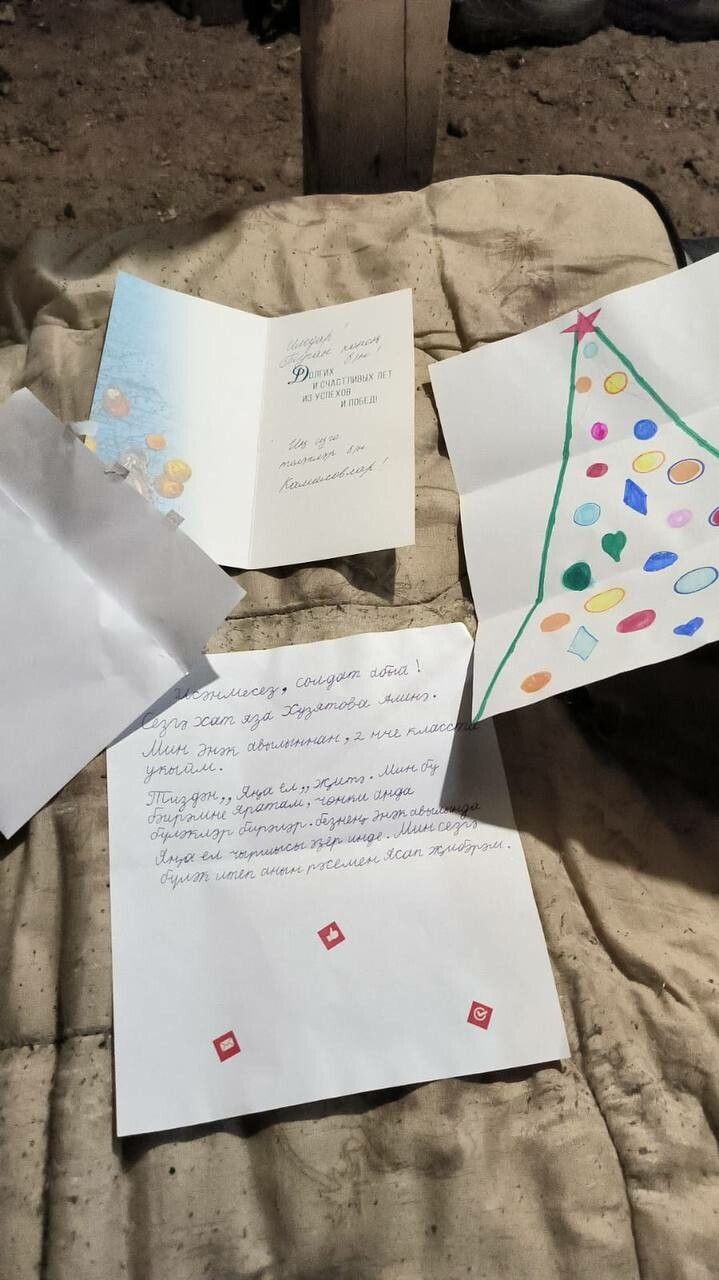 Илдар!
Туган көнең
бн!
Долгих
и счастливых лет
из успехов
и побед!
Иң изге
теләкләр бн
Камаловлар!
Исәнмесез, солдат абый!
Сезгә хат яза Хузятова Аминә.
Мин Энәк авылыннан, 2 нче класста
укыйм.
Тиздән „Яңа ел„ җитә. Мин бу
бәйрәмне яратам, чөнки анда
бүләкләр бирәләр. Безнең Энәк авылында
Яңа ел чыршысы әзер инде. Мин сезгә
бүләк итеп анын рәсемен ясап җибәрәм.